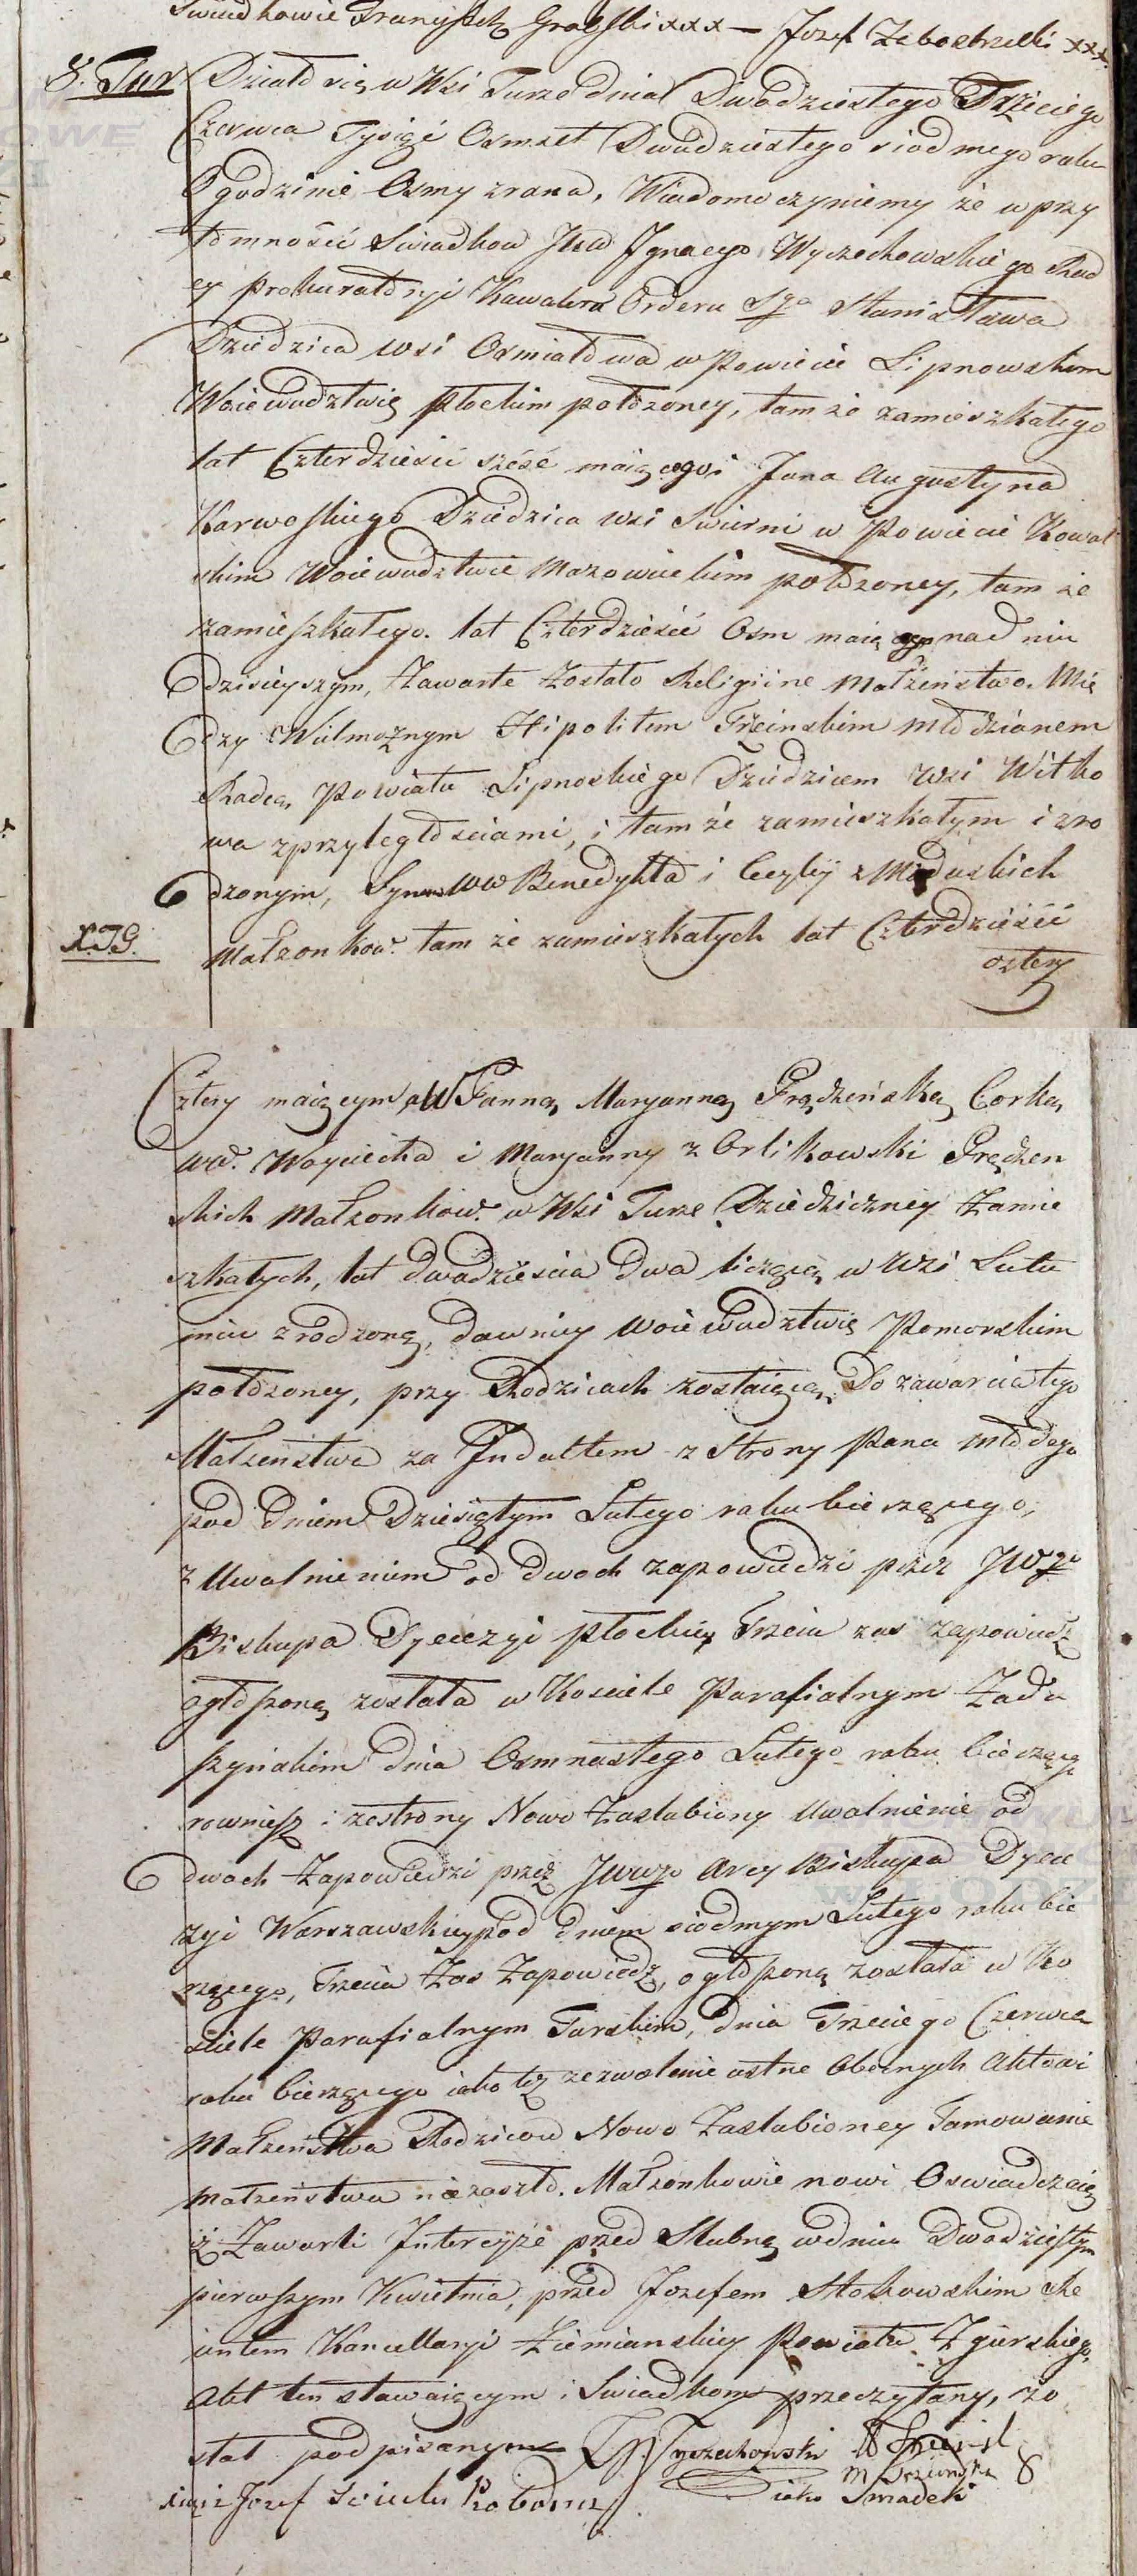 Swiadkowie Franciszek Gralski xxx — Jozef Zebostrzelki xxx
8. Tur
Działo się w Wsi Turze dnia Dwudziestego Trzeciego
Czerwca Tysiąć Osmset Dwudziestego siodmego roku
O godzinie Osmy zrana, Wiadomo czyniemy że w przy
tomności Swiadkow JWW Ignacego Wyczechowskiego Rad
cy Prokuratoryi Kawalera Orderu Sgo Stanisława
Dziedzica wsi Osmiałowa w Powiecie Lipnowskim
Woiewudztwie Płockim położoney, tam że zamieszkałego
lat Czterdzieści sześć maiącego i Jana Augustyna
Karwoskiego Dziedzica wsi Swierni w Powiecie Kowal
skim Woiewudztwie Mazowieckim położoney, tam że
zamieszkałego. lat Czterdzieści Osm maiącego na dniu
dzisieyszym, Zawarte Zostało Religiine Małżenstwo. Mię
dzy Wielmożnym Hipolitem Trzcinskim młodzianem
Radcą Powiatu Lipnoskiego Dziedzicem wsi Witko
wa z przyległościami, i tam że zamieszkałym i zro
dzonym, Synem WW Benedykta i Cecylij z
Małżonkow. tam że zamieszkałych lat Czterdzieści
X.J.S.
cztery
Cztery maiącym, a W Panną Maryanną Prądzeńską Corką
WW. Woyciecha i Maryanny z Orlikowski Prądzen
skich Małżonkow. w Wsi Turze Dziedziczney Zamie
szkałych, lat dwadzieścia dwa liczącą w Wsi Lutu
miu zrodzoną, dawniey Woiewudztwie Pomorskim
położoney, przy Rodzicach zostaiącą. Do zawarcia tego
Małżenstwa za Indultem z Strony Pana młodego
pod dniem Dziesiątym Lutego roku bieszącego,
z Uwolnieniem od dwoch zapowiedzi przez JWgo
Biskupa Dyecezyi Płockiey Trzcia zas zapowiedź
ogłoszoną została w Kosciele Parafialnym Zadu
szynskim dnia Osmnastego Lutego roku bieszące
rowniesz i zestrony Nowo Zaslubiony Uwolnienie od
dwoch Zapowiedzi przez JWWgo Arcy Biskupa Dyece
zyi Warszawskiey pod dniem siodmym Lutego roku bie
rzącego, Trzecia Zas Zapowiedź, ogłoszoną została w Ko
sciele Parafialnym Turskim, dnia Trzeciego Czerwca
roku bierzącego iako też zezwolenie ustne Obecnych Aktowi
Małżeństwa Rodzicow Nowo Zaslubioney Tamowanie
małżeństwa nie zaszło. Małżonkowie nowi Oswiadczaią
iż Zawarli Intercyze przed Slubną w dniu Dwudziestym
pierwszym Kwietnia, przed Jozefem Stokowskim Re
ientem Kancellaryi Ziemianskiey Powiatu Zgierskiego,
Akt ten stawaiącym i Swiadkom przeczytany, zo
stał podpisanym Wyczechowski H Trzcinsk
M Trzcinska
iako Swiadek
xiądz Jozef Proboszcz